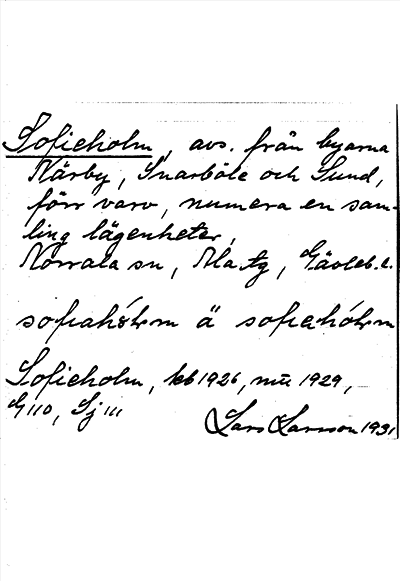 Sofieholm, avs. från byarna
Kärby, Snarböle och Sund,
förr varv, numera en sam-
ling lägenheter,
Norrala sn, Ala tg, Gävleb. l.
Sofieholm, kb 1926, 1929,
G 110, Sj 111
Lars Larsson 1931